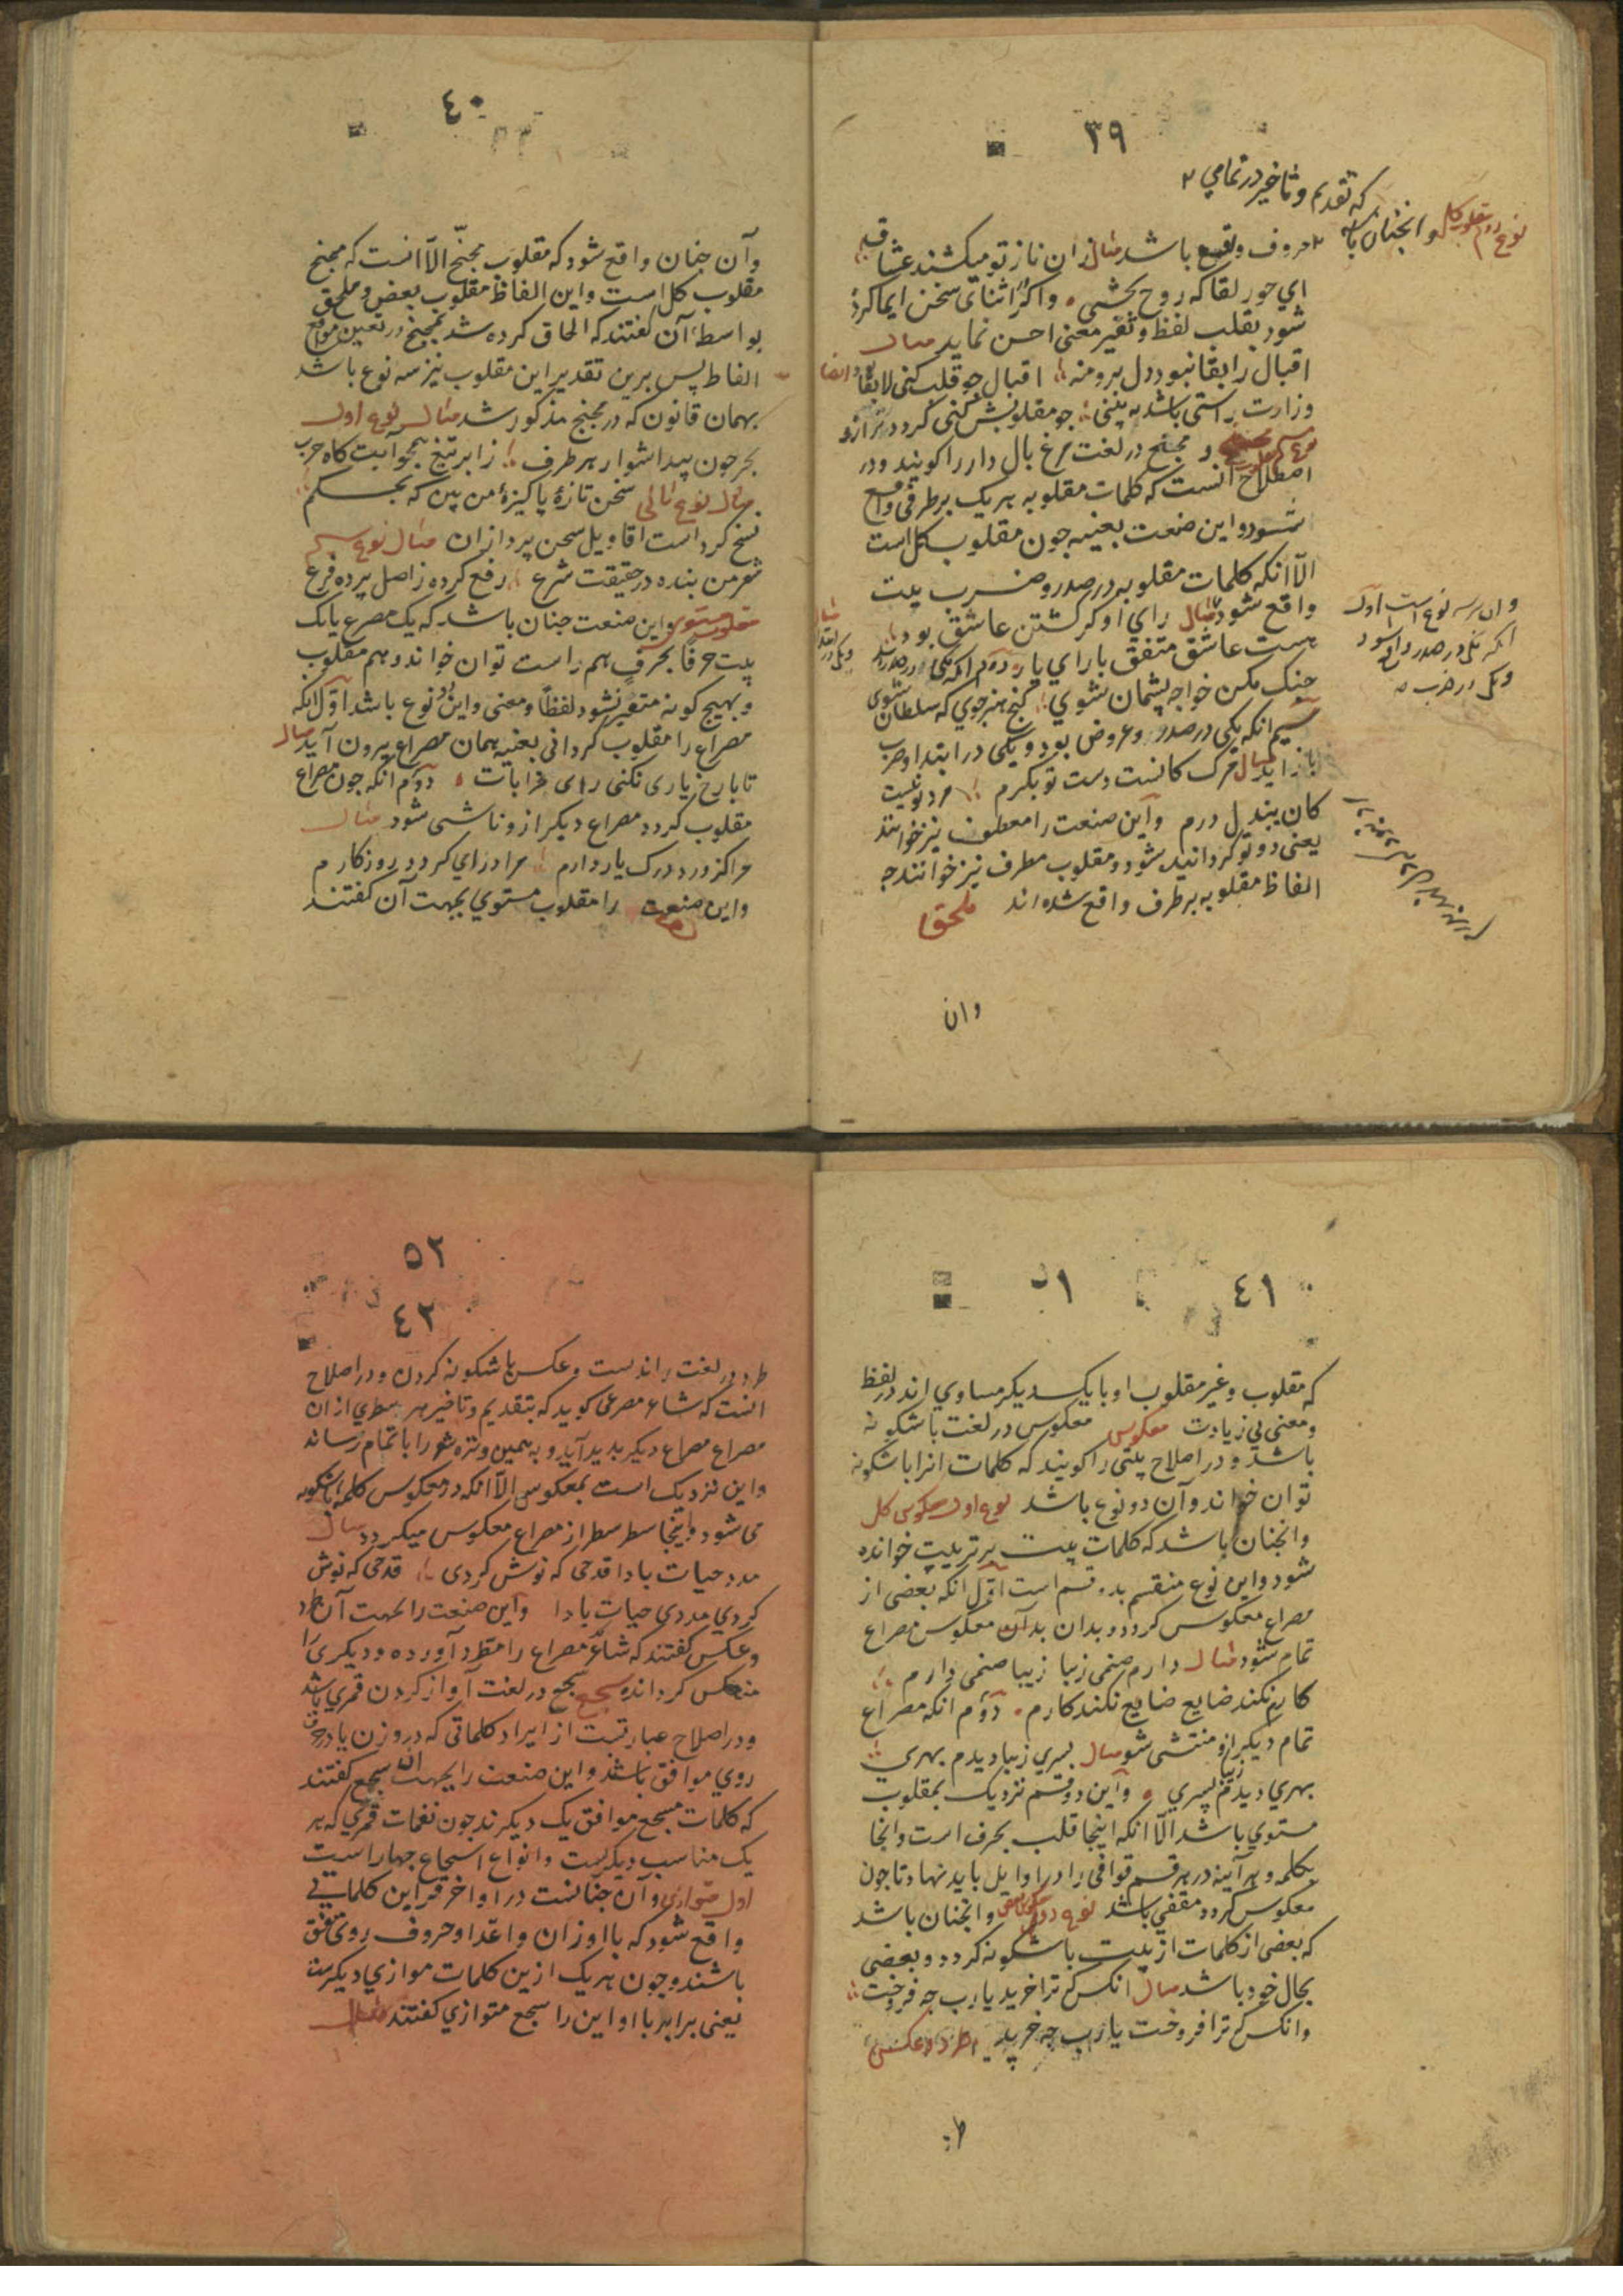 ٣٩
که تقدیم و تاخیر در تمامی ٢
نوع دوم مقلوب کل و انچنان باشد
حروف واقع باشد مثال زان ناز تو میکشند عشاق
اي حور لقا که روح بخشی و اکر اثنای سخن ایما کرده
شود بقلب لفظ و تغیر معنی احسن نماید مثال
اقبال را بقا نبود دل برو منه اقبال جو قلب کنی لا بقا
وزارت راستی باشد به بینی جو مقلوبش کنی کردد ترازو
و مجنح در لغت مرغ بال دار را کویند و در
اصطلاح آنست که کلمات مقلوبه هر یک بر طرفی واقع
شود و این صنعت بعینه جون مقلوب کل است
الا آنکه کلمات مقلوبه در صدر و ضرب بیت
واقع شود مثال رای او کر کشتن عاشق بود
هست عاشق متفق با رای یار دوم انکه یکی در صدر
جنک مکن خواجه پشیمان شوي کنج هنر جوي که سلطان شوی
سیم انکه یکی در صدر و عروض بود و یکی در ابتدا و ضرب
باز اید مثال مرک کانست دست تو بکرم مرد تو نیست
کان ببذل درم و این صنعت را معطف نیز خوانند
یعنی دو تو کردانید شود و مقلوب مطرف نیز خوانند جه
الفاظ مقلوبه بر طرف واقع شده اند ملحق
وان سه نوع است اول
انکه یکی در صدر واقع شود
و یکی در ضرب
وان
٤٠
وآن جنان واقع شود که مقلوب مجنّح الاّ انست که مجنح
مقلوب کل است و این الفاظ مقلوب بعض و ملحق
بواسطهٔ آن کفتند که الحاق کرده شد بمجنح در تعین مواقع
الفاظ پس برین تقدیر این مقلوب نیز سه نوع باشد
بهمان قانون که در مجنح مذکور شد مثال نوع اول
بحر جون پیدا شود از هر طرف زابر تیغ بحر آبت کاه حرب
مثال نوع ثانی سخن تازهٔ پاکیزهٔ من بین که بحکم
نسخ کردست اقاویل سخن پردازان مثال نوع سیم
شعر من بنده در حقیقت شرع رفع کرده ز اصل پرده فرع
مقلوب مستوی و این صنعت جنان باشد که یک مصرع یا یک
بیت حرفا بحرفٍ هم راست توان خواند و هم مقلوب
و بهیج کونه متغیر نشود لفظاً و معنی و این دو نوع باشد اوّل انکه
مصراع را مقلوب کردانی بعینه همان مصراع بیرون آید مثال
تا بارخ زیاری نکنی رای خرابات دوّم انکه جون مصراع
مقلوب کردد مصراع دیکر ازو ناشی شود مثال
مرا کز درد درک یار دارم مرادرای کردد روزکارم
و این صنعت را مقلوب مستوي بجهت آن کفتند
٤١
که مقلوب و غیر مقلوب او با یکدیکر مساوي اند در لفظ
و معنی بی زیادت معکوس معکوس در لغت باشکونه
باشد و در اصلاح بیتی را کویند که کلمات انرا باشکونه
توان خواند و آن دو نوع باشد نوع اول معکوس کل
و انجنان باشد که کلمات بیت بر ترتیب خوانده
شود و این نوع منقسم بدو قسم است اوّل انکه بعضی از
مصراع معکوس کردد و بدان بدان معکوس مصراع
تمام شود مثال دارم صنمی زیبا زیبا صنمی دارم
کارم نکند ضایع ضایع نکند کارم دوّم انکه مصراع
تمام دیکر ازو منتشی شود مثال پسري زیبا دیدم بهري
بهري دیدم زیبا پسري و این دو قسم نزدیک بمقلوب
مستوي باشد الّا انکه اینجا قلب بحرف است وانجا
بکلمه و هر آینه در هر قسم قوافی را در اوایل باید نهاد تا جون
معکوس کردد مقفی باشد نوع دوم معکوس بعض و انجنان باشد
که بعضی از کلمات از بیت باشکونه کردد و بعضی
بحال خود باشد مثال انکس که ترا خرید یا رب جه فروخت
وانکس که ترا فروخت یا رب جه خرید طرد و عکس
ط
٥٢
٤٢
طرد در لغت راندنست و عکس باشکونه کردن و در اصلاح
انست که شاعر مصرعی کوید که بتقدیم و تاخیر هر سطري از ان
مصراع مصراع دیکر پدید آید و به همین وتره شعر را با تمام رساند
و این نزدیک است بمعکوس الاّ انکه در معکوس کلمه باشکونه
می شود و اینجا سطر سطر از مصراع معکوس میکردد مثال
مدد حیات بادا قدحی که نوش کردی قدحی که نوش
کردي مددي حیات بادا و این صنعت را بجهت آن طرد
و عکس کفتند که شاعر مصراع را مطرد آورده و دیکری را
منعکس کردانده سجع سجع در لغت آواز کردن قمري باشد
و در اصلاح عبارتست از ایراد کلماتی که در وزن یا در حرف
روي موافق باشد و این صنعت را بجهت آن سجع کفتند
که کلمات مسجع موافق یک دیکرند جون نغمات قمري که هر
یک مناسب دیکریست و انواع اسجاع جهار است
اول متوازی و آن جنانست در اواخر قراین کلمایی
واقع شود که با اوزان و اعداد و حروف روی متفق
باشند و جون هر یک ازین کلمات موازي دیکرست
یعنی برابر با او این را سجع متوازي کفتند مثال